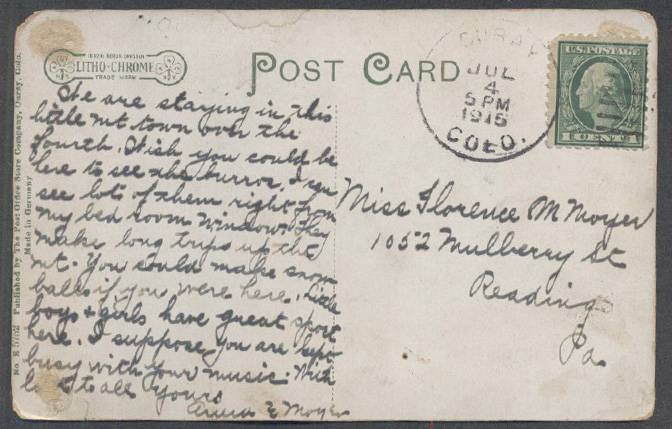 LITHO-CHROME
TRADE MARK
POST CARD
OURAY
JUL
4
5 PM
1915
COLO.
U.S. POSTAGE
1 CENT 1
No. E 5702 Published by The Post Office Store Company, Ouray, Colo.
Made in Germany
We are staying in this
little mt town over the
fourth. Wish you could be
here to see the burros, I can
see lots of them right from
my bed room window. They
make long trips up the
mt. You could make snow
balls if you were here. Little
boys & girls have great sport
here. I suppose you are kept
busy with your music. With
love to all yours
Anna E Moyer
Miss Florence M Moyer
1052 Mulberry St
Reading
Pa.